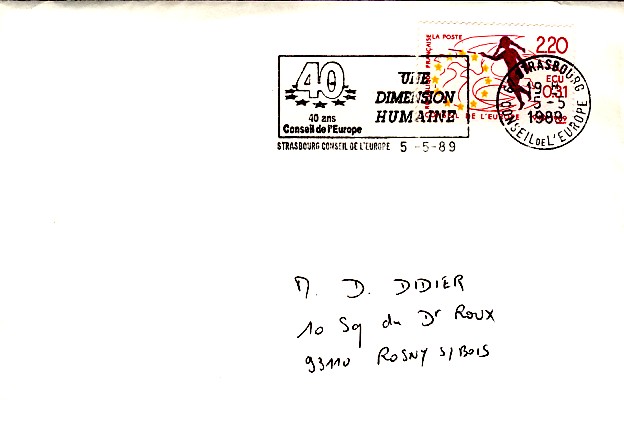 RÉPUBLIQUE FRANÇAISE LA POSTE
2.20
ECU
0.31
CONSEIL DE L'EUROPE
40
40 ans
Conseil de l'Europe
UNE
DIMENSION
HUMAINE
STRASBOURG CONSEIL DE L'EUROPE 5-5-89
STRASBOURG
19 H
5-5
1989
CONSEIL DE L'EUROPE
M. D. DIDIER
10 Sq du Dr ROUX
93110 ROSNY S/BOIS